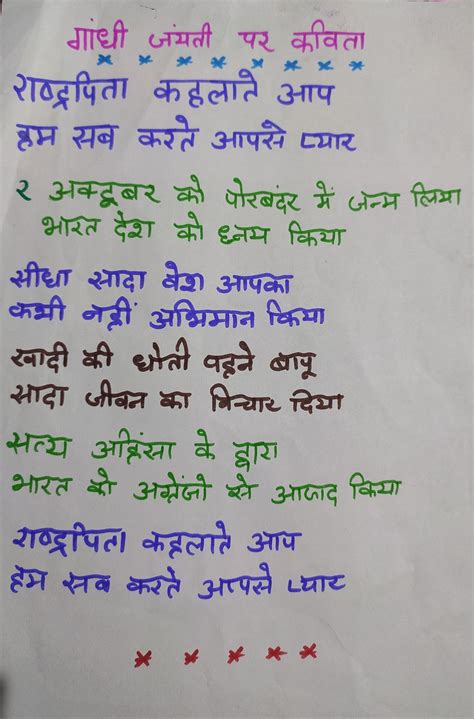 गांधी जंयती पर कविता
राष्ट्रपिता कहलाते आप
हम सब करते आपसे प्यार
२ अक्टूबर को पोरबंदर में जन्म लिया
भारत देश को ध्नय किया
सीधा सादा वेश आपका
कभी नहीं अभिमान किया
खादी की धोती पहने बापू
सादा जीवन का विचार दिया
सत्य अहिंसा के द्वारा
भारत को अग्रेंजो से आजाद किया
राष्ट्रपिता कहलाते आप
हम सब करते आपसे प्यार